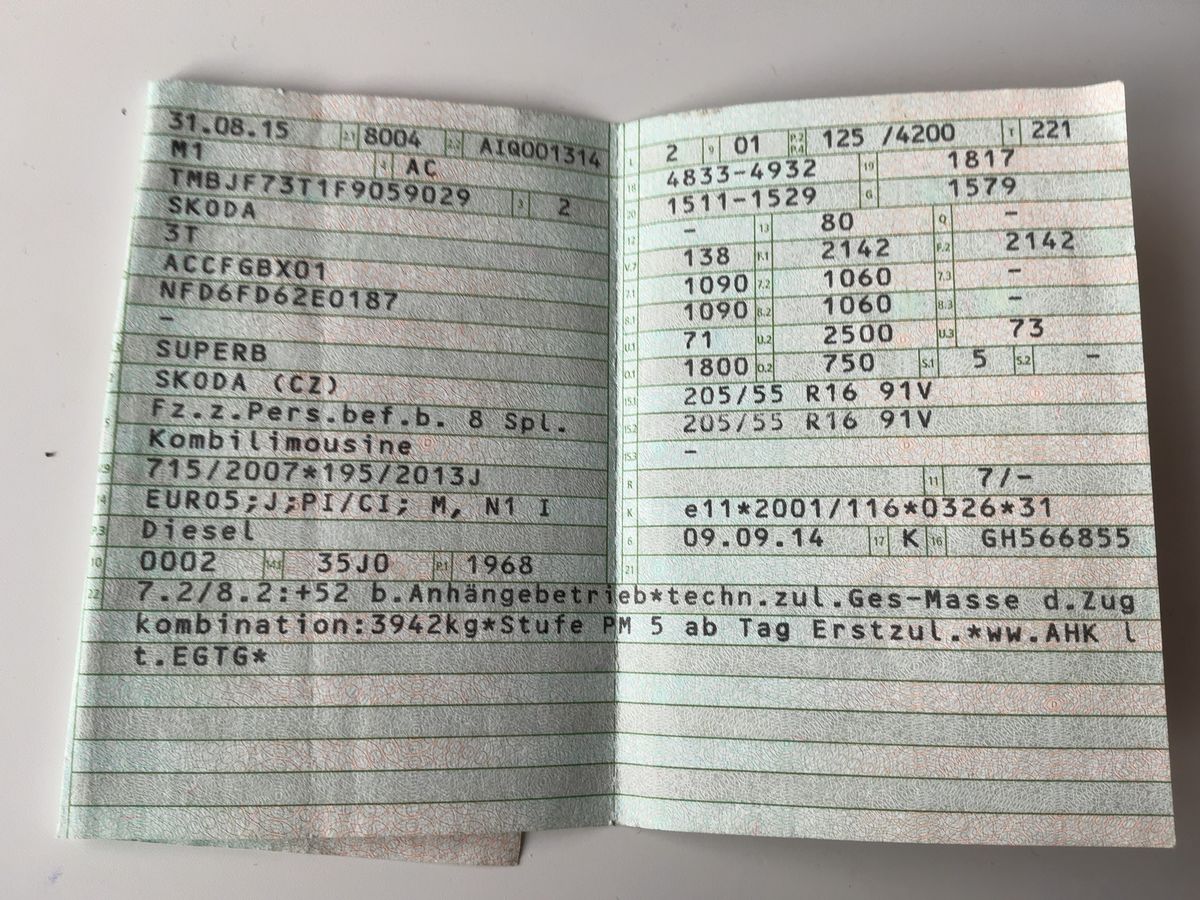 31.08.15 2.1 8004 2.2 AIQ001314
M1 4 AC
TMBJF73T1F9059029 3 2
SKODA
3T
ACCFGBX01
NFD6FD62E0187
–
SUPERB
SKODA (CZ)
5 Fz.z.Pers.bef.b. 8 Spl.
Kombilimousine
715/2007*195/2013J
14 EURO5;J;PI/CI; M, N1 I
P.3 Diesel
10 0002 14.1 35J0 P.1 1968
L 2 9 01 P.2 P.4 125 /4200 T 221
18 4833-4932 19 1817
20 1511-1529 G 1579
12 – 13 80 Q –
V.7 138 F.1 2142 F.2 2142
7.1 1090 7.2 1060 7.3 –
8.1 1090 8.2 1060 8.3 –
U.1 71 U.2 2500 U.3 73
O.1 1800 O.2 750 S.1 5 S.2 –
15.1 205/55 R16 91V
15.2 205/55 R16 91V
15.3 –
R 11 7/–
K e11*2001/116*0326*31
6 09.09.14 17 K 16 GH566855
21
22 7.2/8.2:+52 b.Anhängebetrieb*techn.zul.Ges-Masse d.Zug
kombination:3942kg*Stufe PM 5 ab Tag Erstzul.*ww.AHK l
t.EGTG*